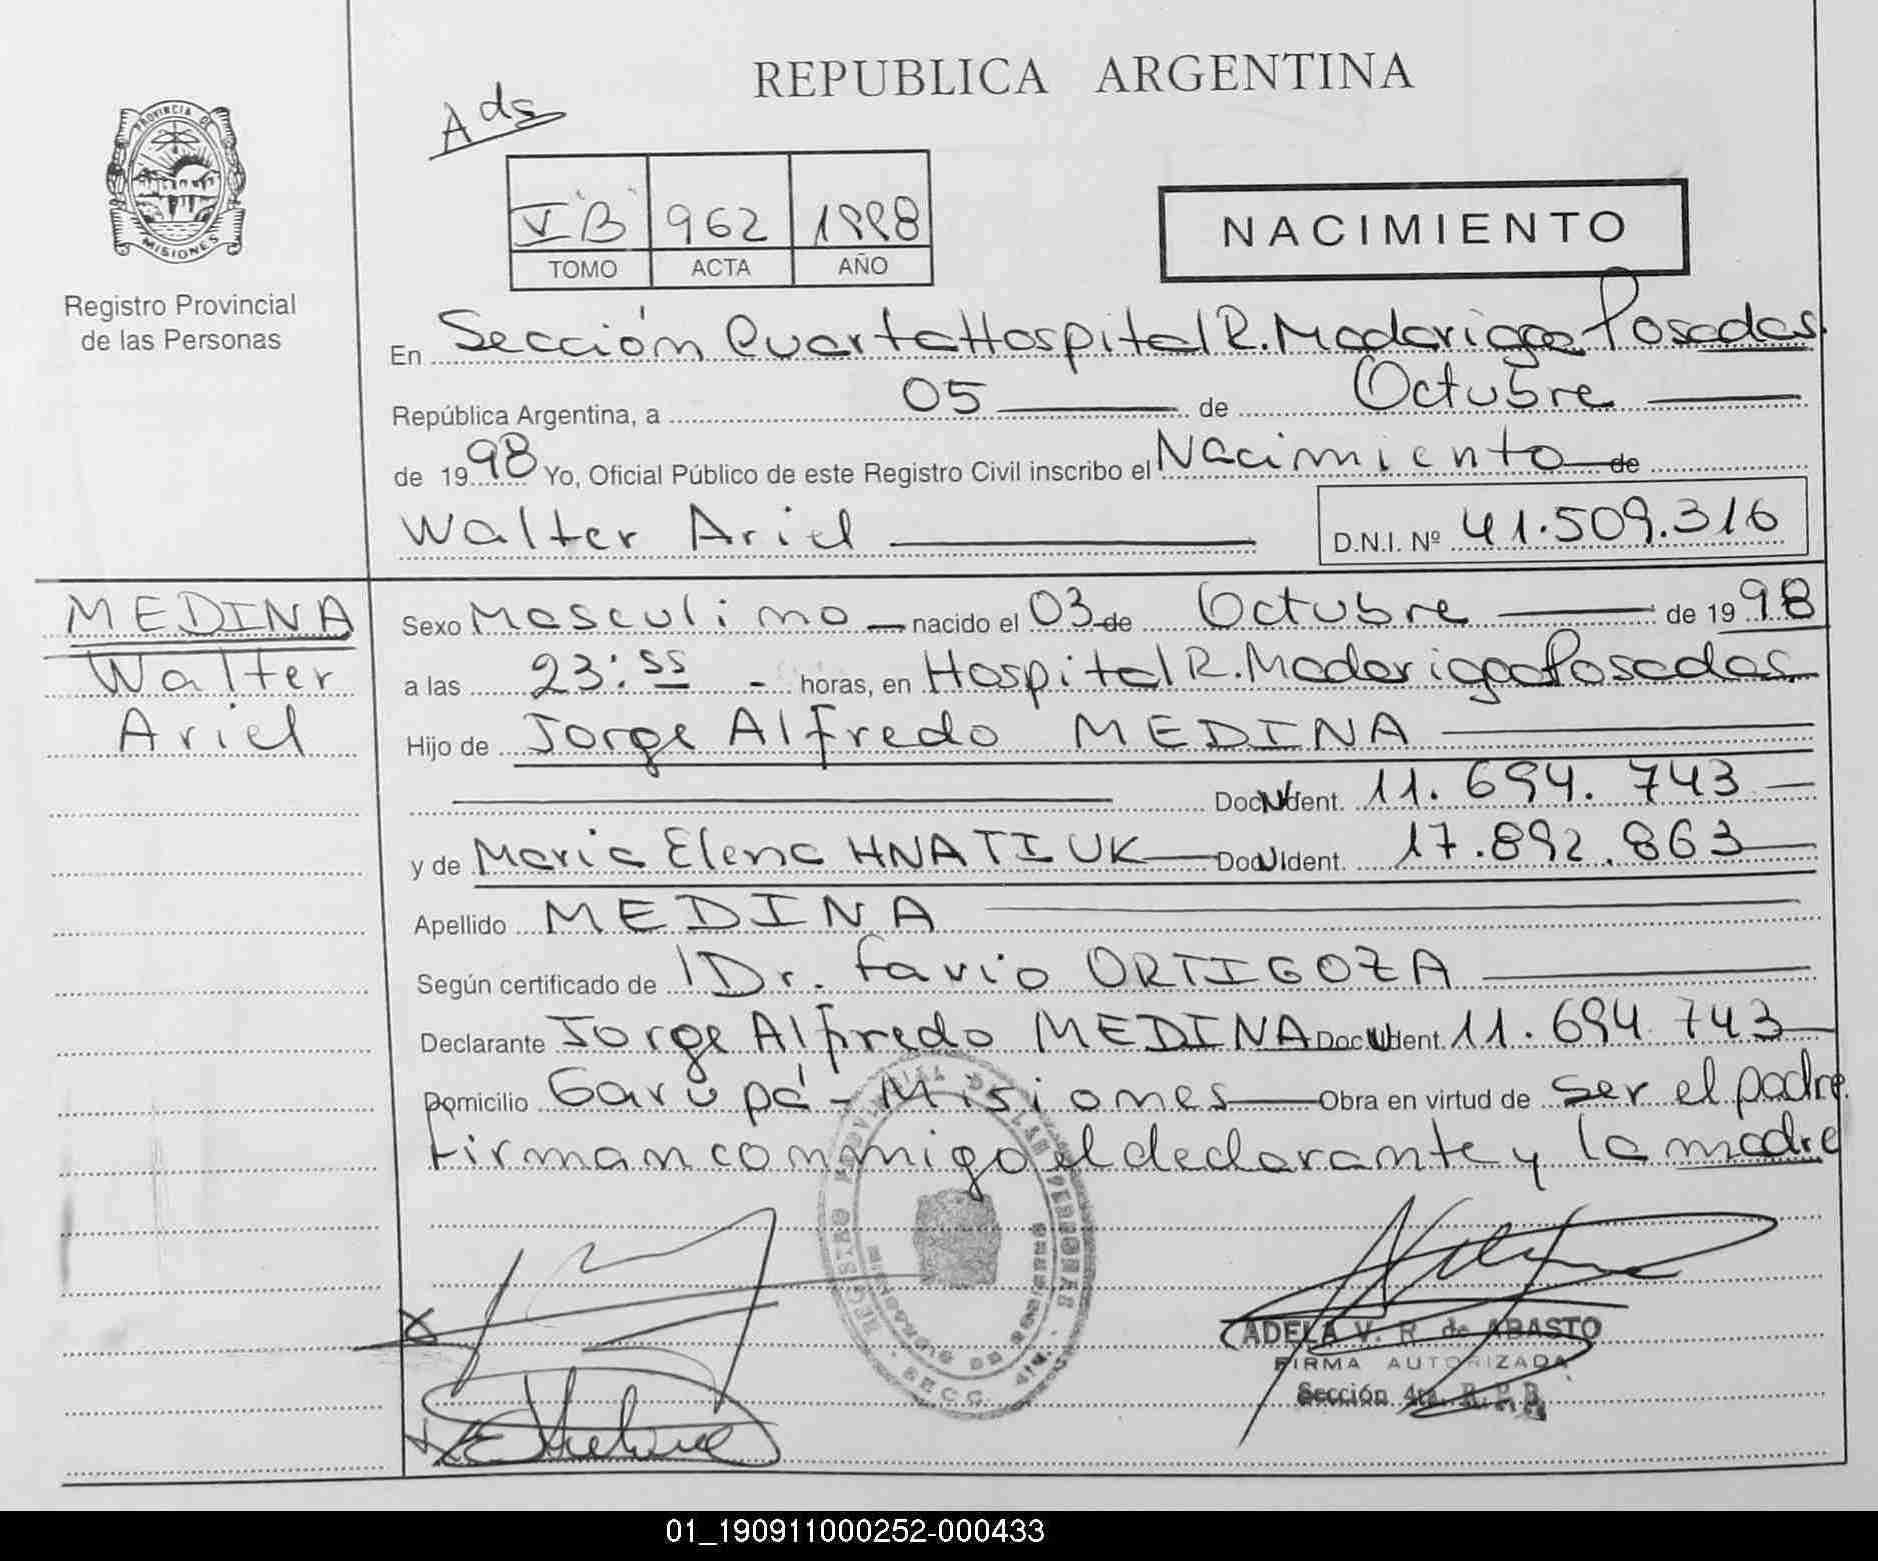 REPUBLICA ARGENTINA
Ads
PROVINCIA DE
MISIONES
Registro Provincial
de las Personas
V"B" 962 1998
TOMO ACTA AÑO
NACIMIENTO
En Sección Cuarta Hospital R. Madariaga Posadas.
República Argentina, a 05 de Octubre
de 1998 Yo, Oficial Público de este Registro Civil inscribo el Nacimiento de
Walter Ariel D.N.I. Nº 41.509.316
MEDINA
Walter
Ariel
Sexo Masculino nacido el 03 de Octubre de 1998
a las 23:55 - horas, en Hospital R. Madariaga Posadas
Hijo de Jorge Alfredo MEDINA
Doc. Ident. 11.694.743
y de Maria Elena HNATIUK Doc. Ident. 17.892.863
Apellido MEDINA
Según certificado de Dr. Favio ORTIGOZA
Declarante Jorge Alfredo MEDINA Doc. Ident. 11.694.743
Domicilio Garupá - Misiones Obra en virtud de ser el padre.
Firman conmigo el declarante y la madre
REGISTRO PROVINCIAL DE LAS PERSONAS
SECC. 4ta.
ADELA V. R. de ABASTO
FIRMA AUTORIZADA
Sección 4ta. R. P. P.
01_190911000252-000433